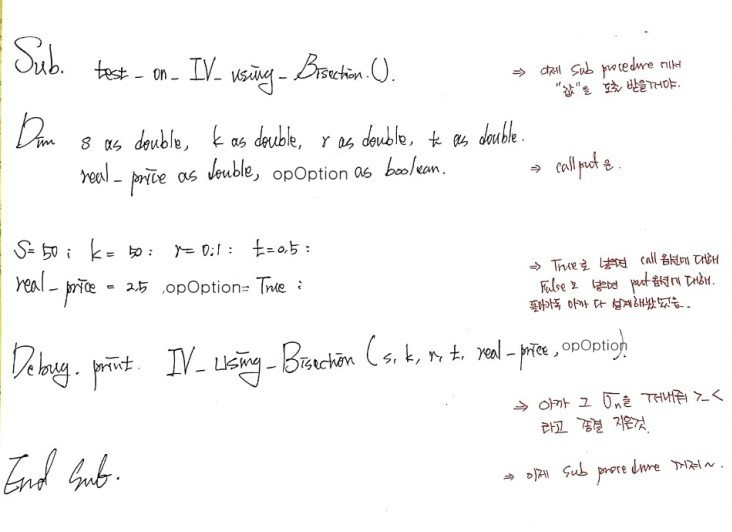 Sub. test_on_IV_using_Bisection().
⇒ 이제 Sub procedure 에서
"값"을 모조 받을거야.
Dim s as double, k as double, r as double, t as double.
real_price as double, opOption as boolean.
⇒ call put 은.
S=50 : k= 50 : r= 0.1 : t=0.5 :
real_price = 2.5 .opOption= True :
⇒ True로 넣으면 call 옵션에 대해
False로 넣으면 put 옵션에 대해.
돌아가죽 아까 다 설계해놨었음.
Debug. print. IV_using_Bisection (s, k, r, t, real_price, opOption).
⇒ 아까 그 σn을 꺼내줘 >_<
라고 종결 지은것.
End Sub.
⇒ 이제 sub procedure 꺼져~.